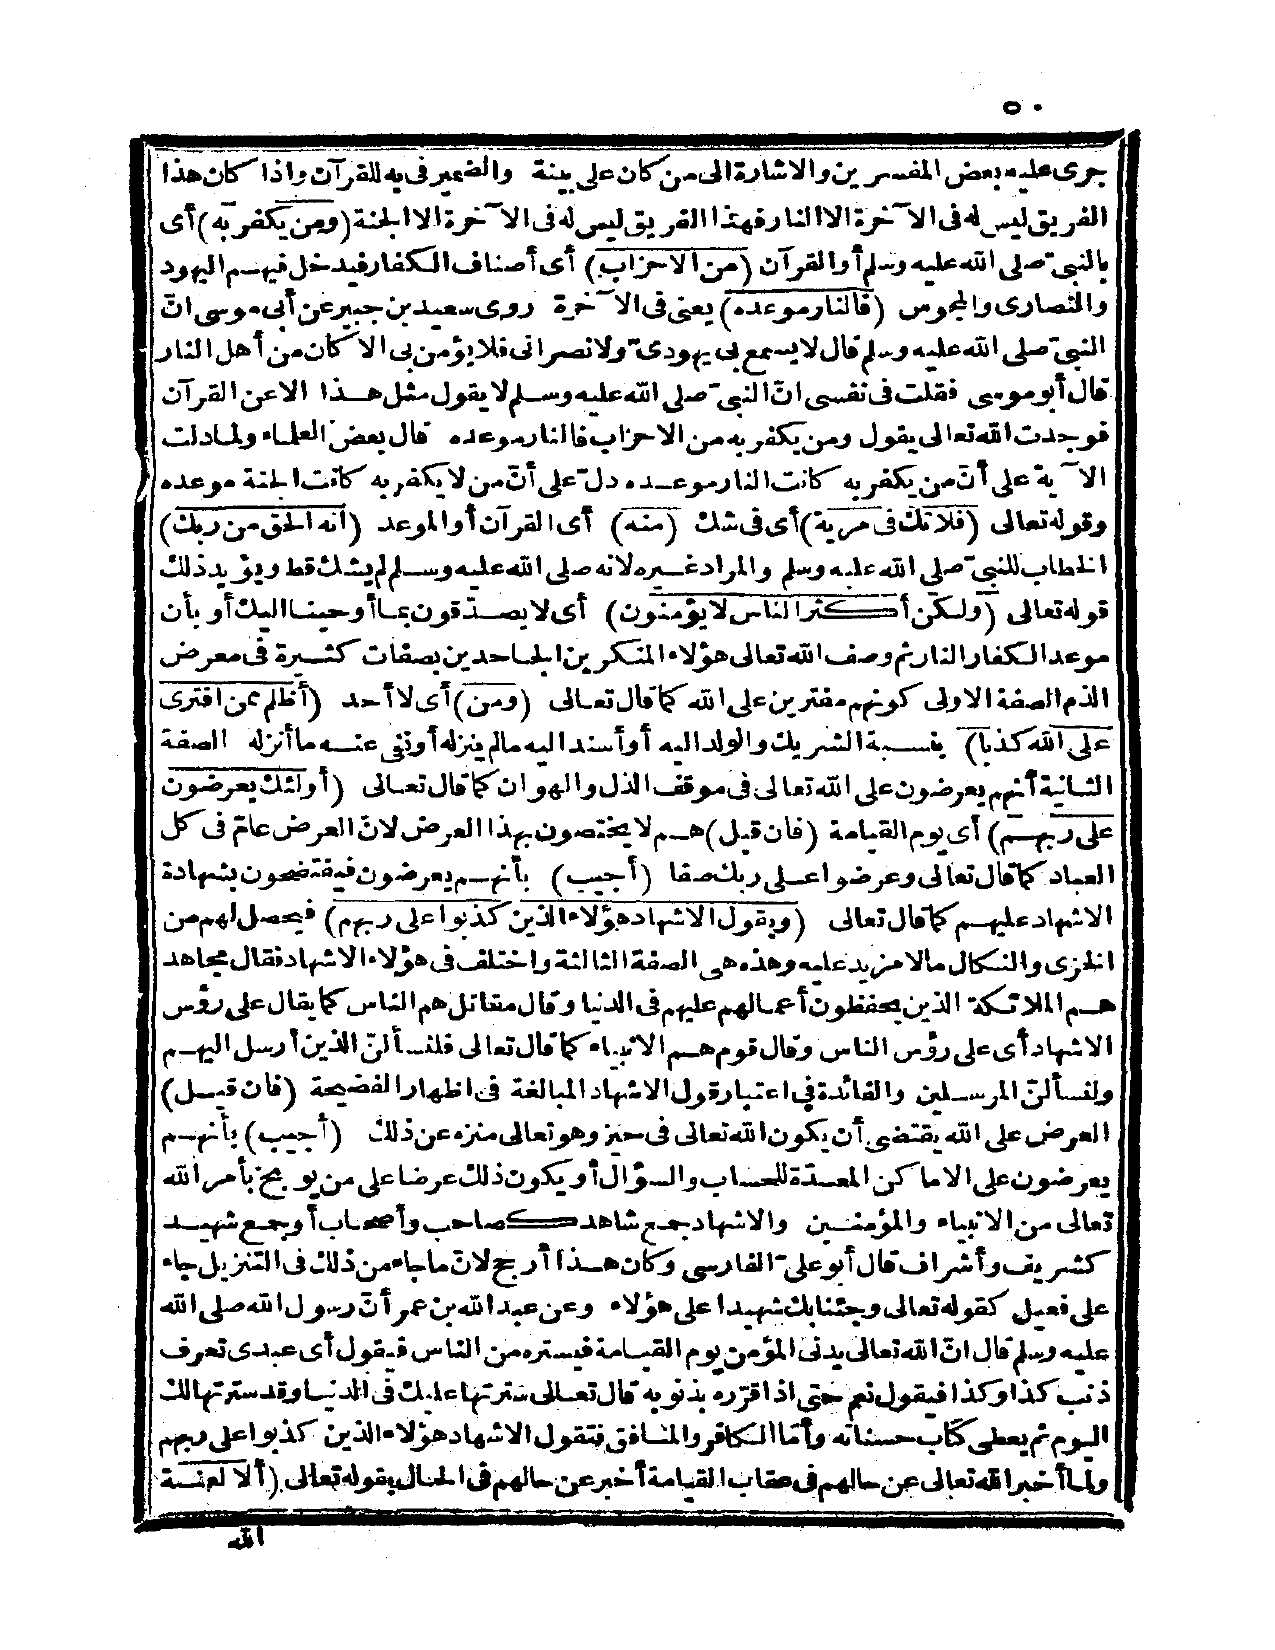 ٥٠
جرى عليه بعض المفسرين والاشارة الى من كان على بينة والضمير فى به للقرآن واذا كان هذا
الفريق ليس له فى الآخرة الا النار فهذا الفريق ليس له فى الآخرة الا الجنة (ومن يكفر به) أى
بالنبىّ صلى الله عليه وسلم أو القرآن (من الاحزاب) أى أصناف الكفار فيدخل فيهم اليهود
والنصارى والمجوس (فالنار موعده) يعنى فى الآخرة روى سعيد بن جبير عن أبى موسى انّ
النبىّ صلى الله عليه وسلم قال لا يسمع بى يهودىّ ولا نصرانى فلا يؤمن بى الا كان من أهل النار
قال أبو موسى فقلت فى نفسى انّ النبىّ صلى الله عليه وسلم لا يقول مثل هذا الا عن القرآن
فوجدت الله تعالى يقول ومن يكفر به من الاحزاب فالنار موعده قال بعض العلماء ولما دلت
الآية على أنّ من يكفر به كانت النار موعده دلّ على أنّ من لا يكفر به كانت الجنة موعده
وقوله تعالى (فلا تك فى مرية) أى فى شك (منه) أى القرآن أو الموعد (أنه الحق من ربك)
الخطاب للنبىّ صلى الله عليه وسلم والمراد غيره لانه صلى الله عليه وسلم لم يشك قط ويؤيد ذلك
قوله تعالى (ولكنّ أكثر الناس لا يؤمنون) أى لا يصدّقون بما أوحينا اليك أو بأن
موعد الكفار النار ثم وصف الله تعالى هؤلاء المنكرين الجاحدين بصفات كثيرة فى معرض
الذم الصفة الاولى كونهم مفترين على الله كما قال تعالى (ومن) أى لا أحد (أظلم ممن افترى
على الله كذبا) بنسبة الشريك والولد اليه أو أسند اليه مالم ينزله أو نفى عنه ما أنزله الصفة
الثانية أنهم يعرضون على الله تعالى فى موقف الذل والهوان كما قال تعالى (أولئك يعرضون
على ربهم) أى يوم القيامة (فان قيل) هم لا يختصون بهذا العرض لانّ العرض عامّ فى كل
العباد كما قال تعالى وعرضوا على ربك صفا (أجيب) بأنهم يعرضون فيفتضحون بشهادة
الاشهاد عليهم كما قال تعالى (ويقول الاشهاد هؤلاء الذين كذبوا على ربهم) فيحصل لهم من
الخزى والنكال مالا مزيد عليه وهذه هى الصفة الثالثة واختلف فى هؤلاء الاشهاد فقال مجاهد
هم الملائكة الذين يحفظون أعمالهم عليهم فى الدنيا وقال مقاتل هم الناس كما يقال على رؤس
الاشهاد أى على رؤس الناس وقال قوم هم الانبياء كما قال تعالى فلنسألنّ الذين أرسل اليهم
ولنسألنّ المرسلين والفائدة فى اعتبار قول الاشهاد المبالغة فى اظهار الفضيحة (فان قيل)
العرض على الله يقتضى أن يكون الله تعالى فى حيز وهو تعالى منزه عن ذلك (أجيب) بأنهم
يعرضون على الاماكن المعدّة للحساب والسؤال أو يكون ذلك عرضا على من يوبخ بأمر الله
تعالى من الانبياء والمؤمنين والاشهاد جمع شاهد كصاحب وأصحاب أو جمع شهيد
كشريف وأشراف قال أبو علىّ الفارسى وكان هذا أرجح لانّ ما جاء من ذلك فى التنزيل جاء
على فعيل كقوله تعالى وجئنا بك شهيدا على هؤلاء وعن عبد الله بن عمر أنّ رسول الله صلى الله
عليه وسلم قال انّ الله تعالى يدنى المؤمن يوم القيامة فيستره من الناس فيقول أى عبدى تعرف
ذنب كذا وكذا فيقول نعم حتى اذا قرّره بذنوبه قال تعالى سترتها عليك فى الدنيا وقد سترتها لك
اليوم ثم يعطى كتاب حسناته وأمّا الكافر والمنافق فتقول الاشهاد هؤلاء الذين كذبوا على ربهم
ولما أخبر الله تعالى عن حالهم فى عقاب القيامة أخبر عن حالهم فى الحال بقوله تعالى (ألا لعنة
الله